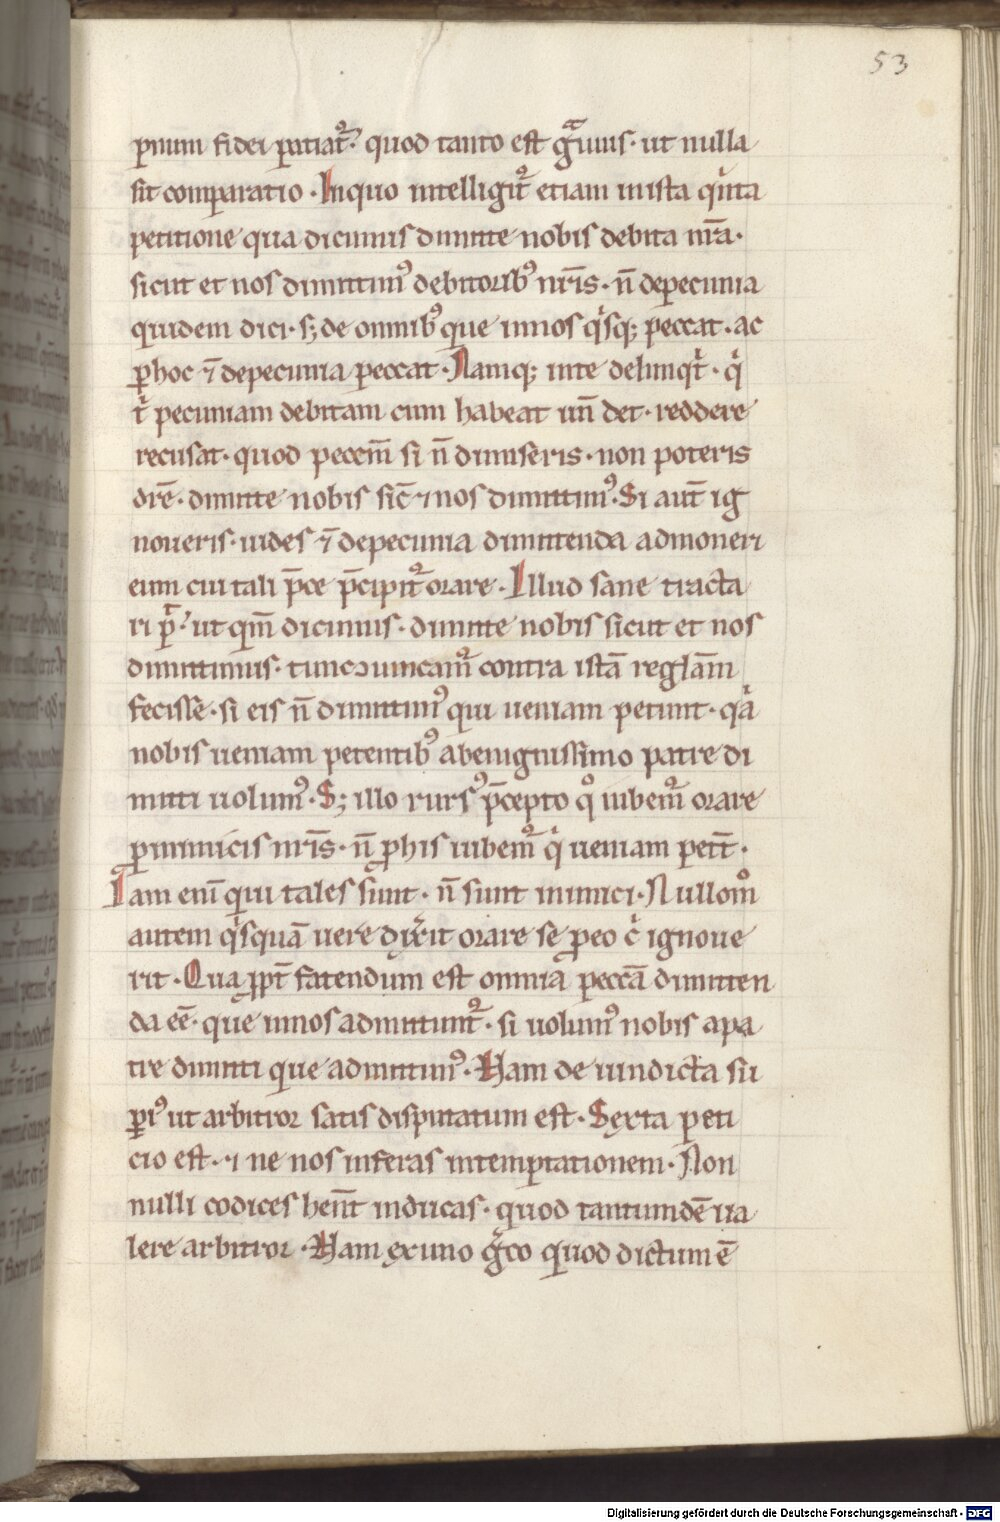 53
pmum fidei patiat᷒. quod tanto est gͣuius. ut nulla
sit comparatio. Inquo intelligit᷒ etiam inista qͥnta
petitione qua dicimus dimitte nobis debita nr̄a.
sicut et nos dimittimꝰ debitoribꝰ nr̄is. n̄ depecunia
quidem dici. s; de omnibꝰ que innos qͥsq; peccat. ac
ꝑhoc ⁊̄ depecunia peccat. Namq; inte delinqͥt. qͥ
tͥ pecuniam debitam cum habeat un̄ det. reddere
recusat. quod peccm̄ si n̄ dimiseris. non poteris
dr̄e. dimitte nobis sic̄ ⁊ nos dimittimꝰ. Si aut̄ ig
noueris. uides ⁊̄ depecunia dimittenda admoneri
eum cui tali p̄ce p̄cipit᷒ orare. Illud sane tracta
ri pͭ. ut qm̄ dicimus. dimitte nobis sicut et nos
dimittimus. tunc ↄuincam᷒ contra istā reglam̄
fecisse. si eis n̄ dimittimꝰ qui ueniam petunt. qͥa
nobis ueniam petentibꝰ abenignissimo patre di
mitti uolumꝰ. S; illo rursꝰ p̄cepto qͦ iubem᷒ orare
ꝑinimicis nr̄is. n̄ ꝓhis iubem᷒ qͥ ueniam pett̄.
Iam eni̅ qui tales sunt. n̄ sunt inimici. Nullomͦ
autem qͥsquā uere dixͬit orare se ꝓeo cͥ ignoue
rit. Qua ꝓpt̄ fatendum est omnia peccā dimitten
da eē. que innos admittunt᷒. si uolumꝰ nobis apa
tre dimitti que admittimꝰ. Nam de uindicta su
ꝑiꝰ ut arbitror satis disputatum est. Sexta peti
cio est. ⁊ ne nos inferas intemptationem. Non
nulli codices hent̄ inducas. quod tantumdē ua
lere arbitror. Nam exuno gͤco quod dictum ē
Digitalisierung gefördert durch die Deutsche Forschungsgemeinschaft - DFG